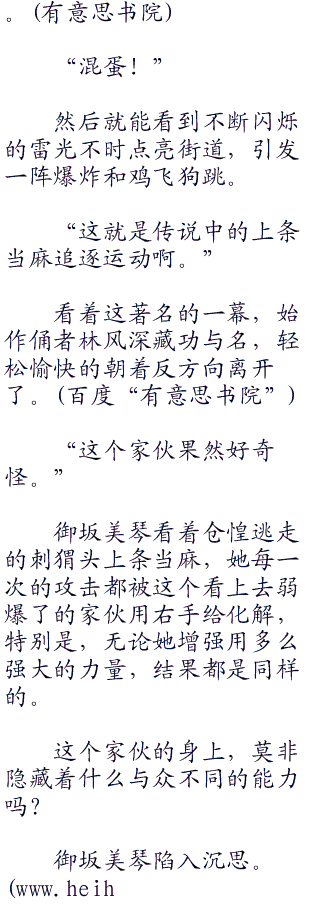 。(有意思书院)
“混蛋！”
然后就能看到不断闪烁
的雷光不时点亮街道，引发
一阵爆炸和鸡飞狗跳。
“这就是传说中的上条
当麻追逐运动啊。”
看着这著名的一幕，始
作俑者林风深藏功与名，轻
松愉快的朝着反方向离开
了。(百度“有意思书院”)
“这个家伙果然好奇
怪。”
御坂美琴看着仓惶逃走
的刺猬头上条当麻，她每一
次的攻击都被这个看上去弱
爆了的家伙用右手给化解，
特别是，无论她增强用多么
强大的力量，结果都是同样
的。
这个家伙的身上，莫非
隐藏着什么与众不同的能力
吗？
御坂美琴陷入沉思。
(www.heih